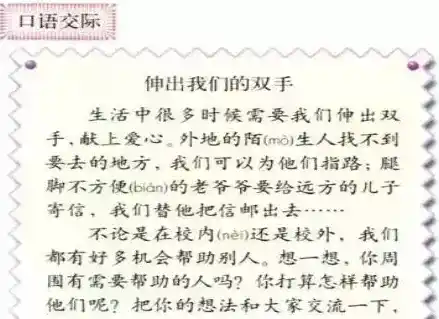 口语交际
伸出我们的双手
生活中很多时候需要我们伸出双
手、献上爱心。外地的陌(mò)生人找不到
要去的地方，我们可以为他们指路；腿
脚不方便(biàn)的老爷爷要给远方的儿子
寄信，我们替他把信邮出去……
不论是在校内(nèi)还是校外，我们
都有好多机会帮助别人。想一想，你周
围有需要帮助的人吗？你打算怎样帮助
他们呢？把你的想法和大家交流一下，